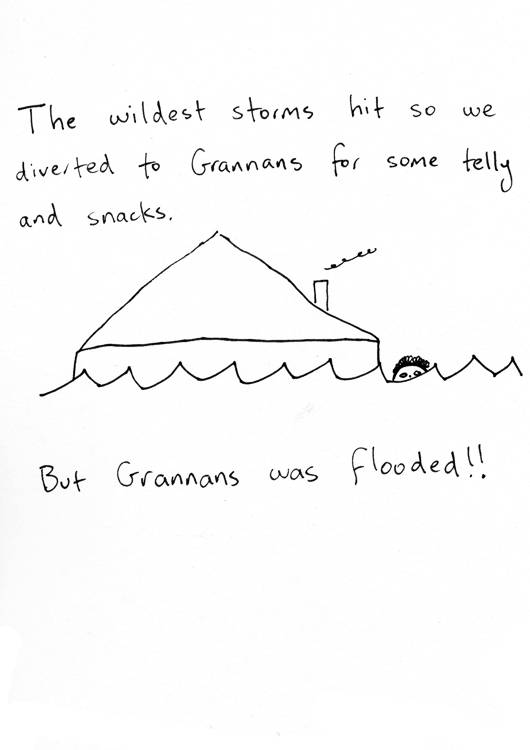 The wildest storms hit so we
diverted to Grannans for some telly
and snacks.
But Grannans was flooded!!